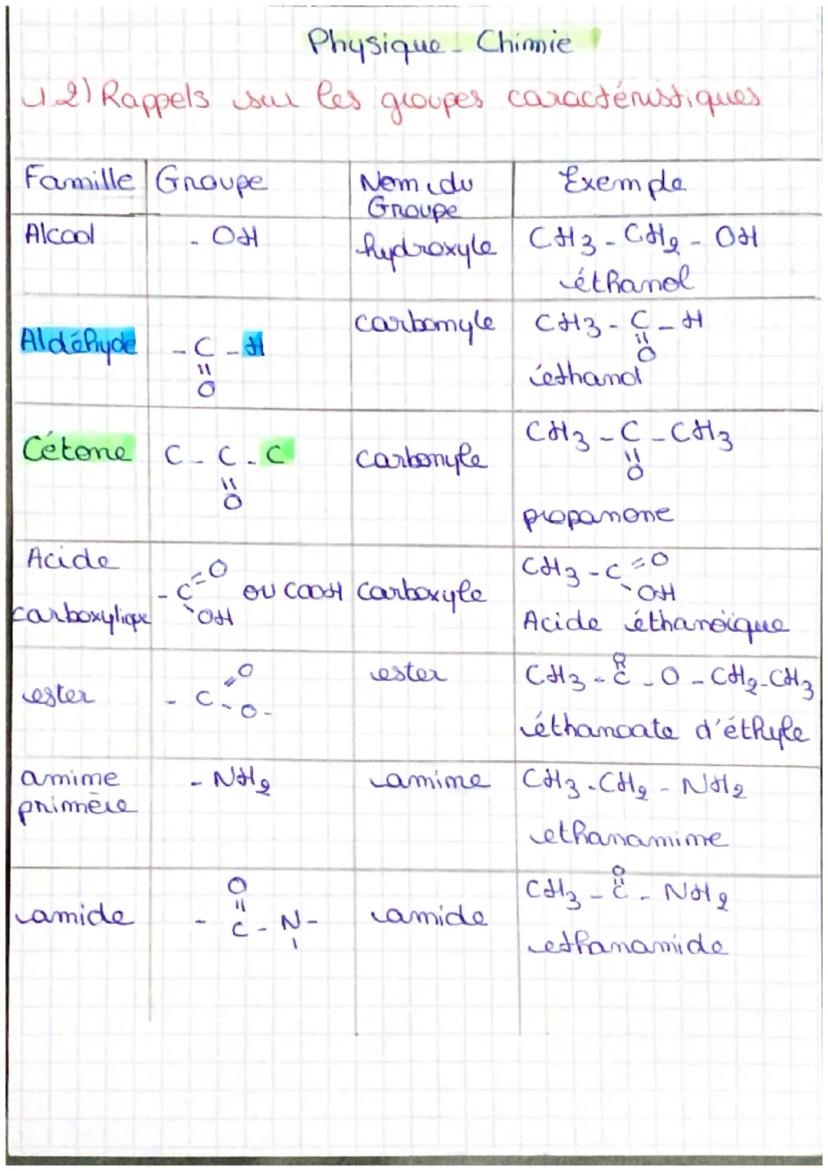 Physique - Chimie
1.2) Rappels sur les groupes caractéristiques
Famille Groupe Nom du Groupe Exemple
Alcool - OH hydroxyle CH3 - CH2 - OH
éthanol
Aldéhyde - C - H carbomyle CH3 - C - H
O O
éthanol
Cétone C - C - C carbonyle CH3 - C - CH3
O O
propanone
Acide carboxylique - C = O OH ou COOH carboxyle CH3 - C = O OH
Acide éthanoïque
ester - C = O O - ester CH3 - C - O - CH2 - CH3
O
éthanoate d'éthyle
amime primère - NH2 amime CH3 - CH2 - NH2
ethanamime
amide - C - N - amide CH3 - C - NH2
O O
ethanamide